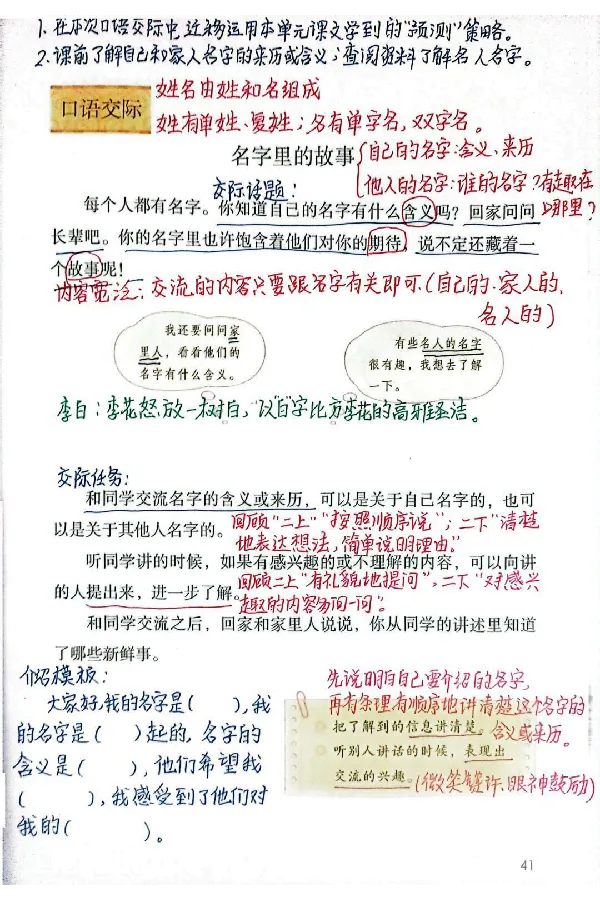 1. 在本次口语交际中,迁移运用本单元课文学到的"预测"策略。
2. 课前了解自己和家人名字的来历或含义;查阅资料了解名人名字。
姓名由姓和名组成
口语交际
姓有单姓、复姓;名有单字名,双字名。
名字里的故事
自己的名字:含义、来历
他人的名字:谁的名字?有趣在哪里?
交际话题!
每个人都有名字。你知道自己的名字有什么含义吗?回家问问
长辈吧。你的名字里也许饱含着他们对你的期待,说不定还藏着一
个故事呢!
内容宽泛:交流的内容只要跟名字有关即可(自己的、家人的、
名人的)
我还要问问家
里人,看看他们的
名字有什么含义。
有些名人的名字
很有趣,我想去了解
一下。
李白:李花怒放一树白,以"白"字比方李花的高雅圣洁。
交际任务:
和同学交流名字的含义或来历,可以是关于自己名字的,也可
以是关于其他人名字的。
回顾"二上""按照顺序说";二下"清楚
地表达想法,简单说明理由。"
听同学讲的时候,如果有感兴趣的或不理解的内容,可以向讲
的人提出来,进一步了解。
回顾二上"有礼貌地提问",二下"对感兴
趣的内容多问一问"。
和同学交流之后,回家和家里人说说,你从同学的讲述里知道
了哪些新鲜事。
介绍模板:
大家好,我的名字是( ),我
的名字是( )起的,名字的
含义是( ),他们希望我
( ),我感受到了他们对
我的( )。
先说明白自己要介绍的名字,
再有条理有顺序地讲清楚这个名字的
含义或来历。
把了解到的信息讲清楚。
听别人讲话的时候,表现出
交流的兴趣。
(微笑、赞许、眼神鼓励)
41